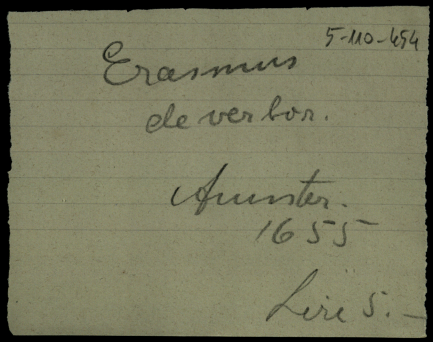 5-110-454
Erasmus
de verbor.
Amster.
1655
Lire 5.-